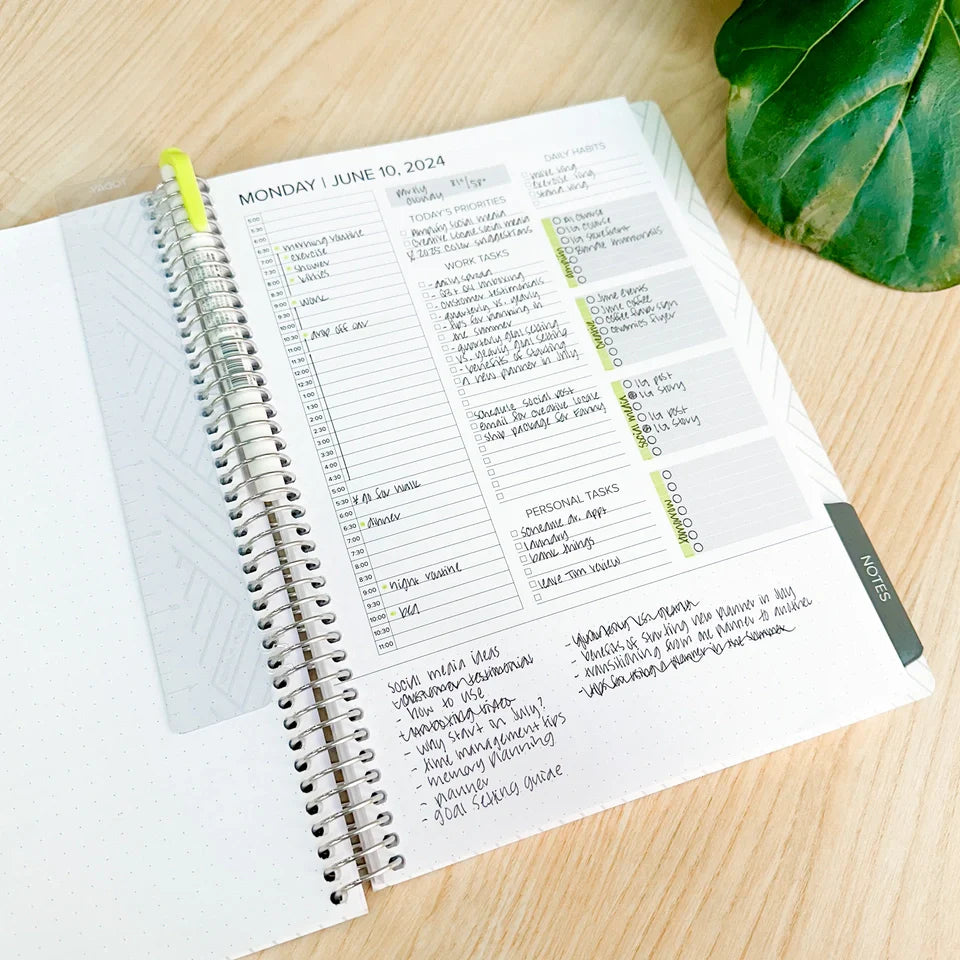 TODAY
MONDAY | JUNE 10, 2024
81°/58°
5:00
6:00
6:30 morning routine
7:00 exercise
7:30 shower
8:00
8:30
9:00 work
9:30
10:00
10:30 drop off car
11:00
11:30
12:00
12:30
1:00
1:30
2:00
2:30
3:00
3:30
4:00
4:30
5:00
5:30 * go for walk
6:00
6:30 dinner
7:00
7:30
8:00
8:30
9:00 night routine
9:30
10:00 bed
10:30
11:00
TODAY'S PRIORITIES
Amplify social media
Creative Locale social media
2025 color suggestions
WORK TASKS
- daily spread
- unboxing
- customer testimonials
- quarterly vs. yearly
- tips for planning in
the summer
- quarterly goal setting
vs. yearly goal setting
- benefits of starting
a new planner in July
schedule social post
email for creative locale
ship package for
PERSONAL TASKS
schedule dr. appt
laundry
bank things
leave Tim review
DAILY HABITS
exercise ring
stand ring
Amplify
IG storefront
June events
June coffee
coffee flava sign
ceramics flyer
social media
IG post
IG story
IG post
IG story
tomorrow
NOTES
social media ideas
- customer testimonials
- how to use
- unboxing video
- why start in July?
- time management tips
- memory planning
- planner
- goal setting guide
- benefits of starting new planner in July
- transitioning from one planner to another